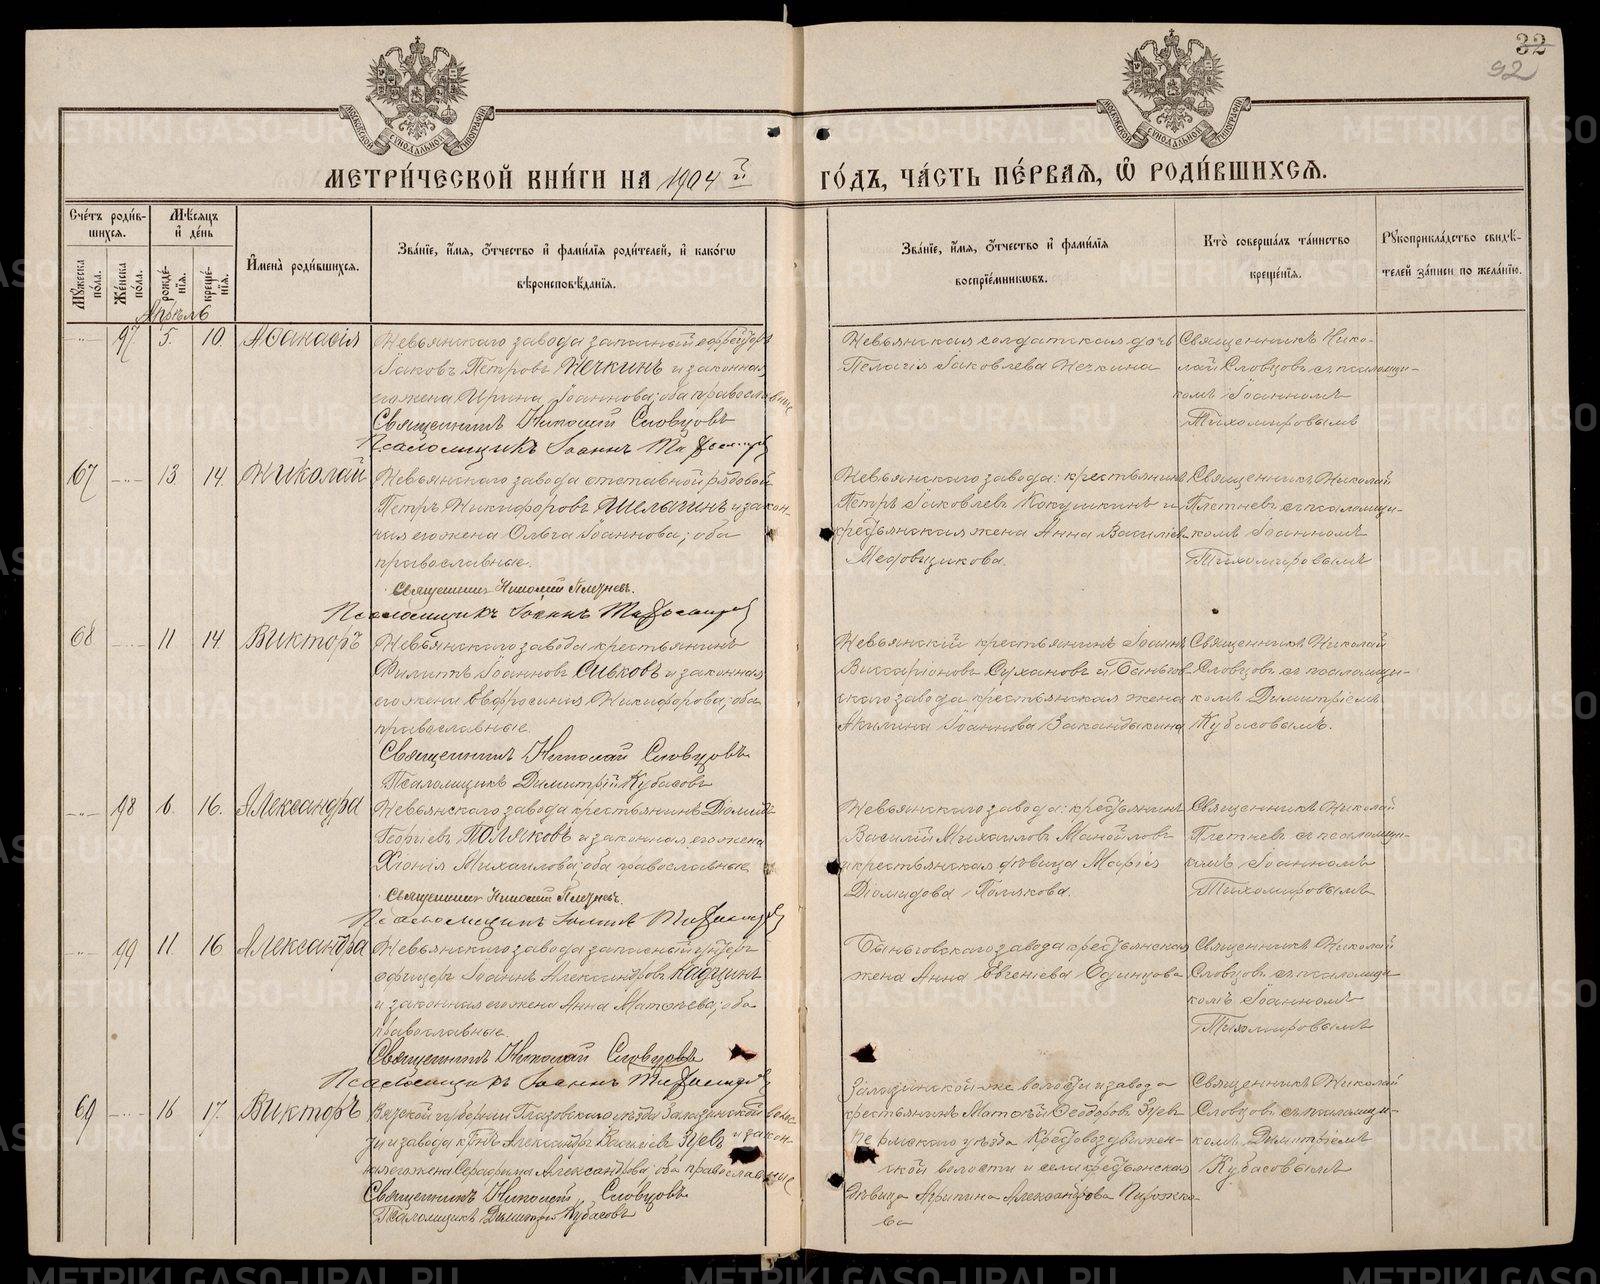 32
92
МЕТРИ́ЧЕСКОЙ КНИ́ГИ НА 1904 й
ГО́ДЪ, ЧА́СТЬ ПЕ́РВАЯ, Ѽ РОДИ́ВШИХСЯ.
Сче́тъ роди́в-
шихся.
Мѣ́сяцъ
и҆ де́нь
И҆мена̀ роди́вшихся.
Зва́нїе, и҆́мя, ѻ҆́тчество и҆ фами́лїя роди́телей, и҆ како́гѡ
вѣроисповѣ́данїя.
Мꙋ́жеска
по́ла.
Же́нска
по́ла.
рожде́-
нїя.
креще́-
нїя.
Зва́нїе, и҆́мя, ѻ҆́тчество и҆ фами́лїя
воспрїе́мникѡвъ.
Кто̀ соверша́лъ та́инство
креще́нїя.
Рꙋкоприкла́дство свидѣ́-
телей за́писи по жела́нїю.
Апрѣль
97 5. 10. Аѳанасія
Невьянскаго завода запасный ефрейторъ
Іаковъ Петровъ Нечкинъ и законная
его жена Ирина Іоаннова; оба православные
Священникъ Николай Словцовъ
Псаломщикъ Іоаннъ Тихомировъ
Невьянская солдатская дочь
Пелагія Іаковлева Нечкина
Священникъ Нико-
лай Словцовъ съ псаломщи-
комъ Іоанномъ
Тихомировымъ
67 13. 14. Николай
Невьянскаго завода отставной рядовой
Петръ Никифоровъ Шелыгинъ и закон-
ная его жена Ольга Іоаннова; оба
православные.
Священникъ Николай Плетневъ.
Псаломщикъ Іоаннъ Тихомировъ
Невьянскаго завода: крестьянинъ
Петръ Іаковлевъ Кокушкинъ и
крестьянская жена Анна Василіева
Медовщикова.
Священникъ Николай
Плетневъ съ псаломщи-
комъ Іоанномъ
Тихомировымъ
68 11 14. Викторъ
Невьянскаго завода крестьянинъ
Филиппъ Іоанновъ Сиьковъ и законная
его жена Евфросинія Никифорова; оба
православные.
Священникъ Николай Словцовъ
Псаломщикъ Димитрій Кубасовъ
Невьянскій крестьянинъ Іоаннъ
Виссаріоновъ Сухановъ и Быньгов-
скаго завода крестьянская жена
Акилина Іоаннова Закандыкина
Священникъ Николай
Словцовъ съ псаломщи-
комъ Димитріемъ
Кубасовымъ.
98 6. 16. Александра
Невьянскаго завода крестьянинъ Діомидъ
Георгіевъ Поляковъ и законная его жена
Хіонія Михаилова; оба православные
Священникъ Николай Плетневъ.
Псаломщикъ Іоаннъ Тихомировъ
Невьянскаго завода: крестьянинъ
Василій Михаиловъ Манойловъ
и крестьянская дѣвица Марія
Діомидова Полякова.
Священникъ Николай
Плетневъ съ псаломщи-
комъ Іоанномъ
Тихомировымъ
99 11. 16 Александра
Невьянскаго завода запасный унтеръ
офицеръ Іоаннъ Александровъ Кадцинъ
и законная его жена Анна Матѳѣева; оба
православные.
Священникъ Николай Словцовъ
Псаломщикъ Іоаннъ Тихомировъ
Быньговскаго завода крестьянская
жена Анна Евгеніева Одинцова
Священникъ Николай
Словцовъ съ псаломщи-
комъ Іоанномъ
Тихомировымъ
69 16 17. Викторъ
Вятской губерніи Глазовскаго уѣзда Залазнинской волос-
ти и завода кр-нъ Александръ Василіевъ Зуевъ и закон-
ная его жена Серафима Александрова; оба православные
Священникъ Николай Словцовъ
Псаломщикъ Димитрій Кубасовъ
Залазнинской-же волости и завода
крестьянинъ Матѳѣй Ѳеодоровъ Зуевъ
Пермскаго уѣзда Крестовоздвижен-
ской волости и села крестьянская
дѣвица Агрипина Александрова Пирожко-
ва
Священникъ Николай
Словцовъ съ псаломщи-
комъ Димитріемъ
Кубасовымъ